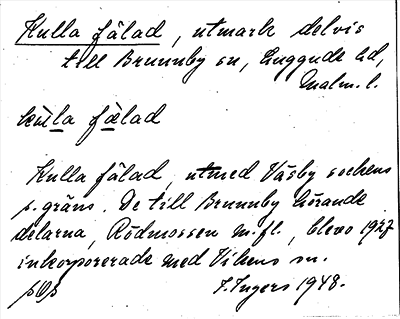 Kulla fälad, utmark delvis
till Brunnby sn, Luggude hd,
Malm. l.
kùlla fàlad
Kulla fälad, utmed Väsby sockens
s. gräns. De till Brunnby hörande
delarna, Rödmossen m. fl., blevo 1927
inkorporerade med Vikens sn.
I. Ingers 1948.